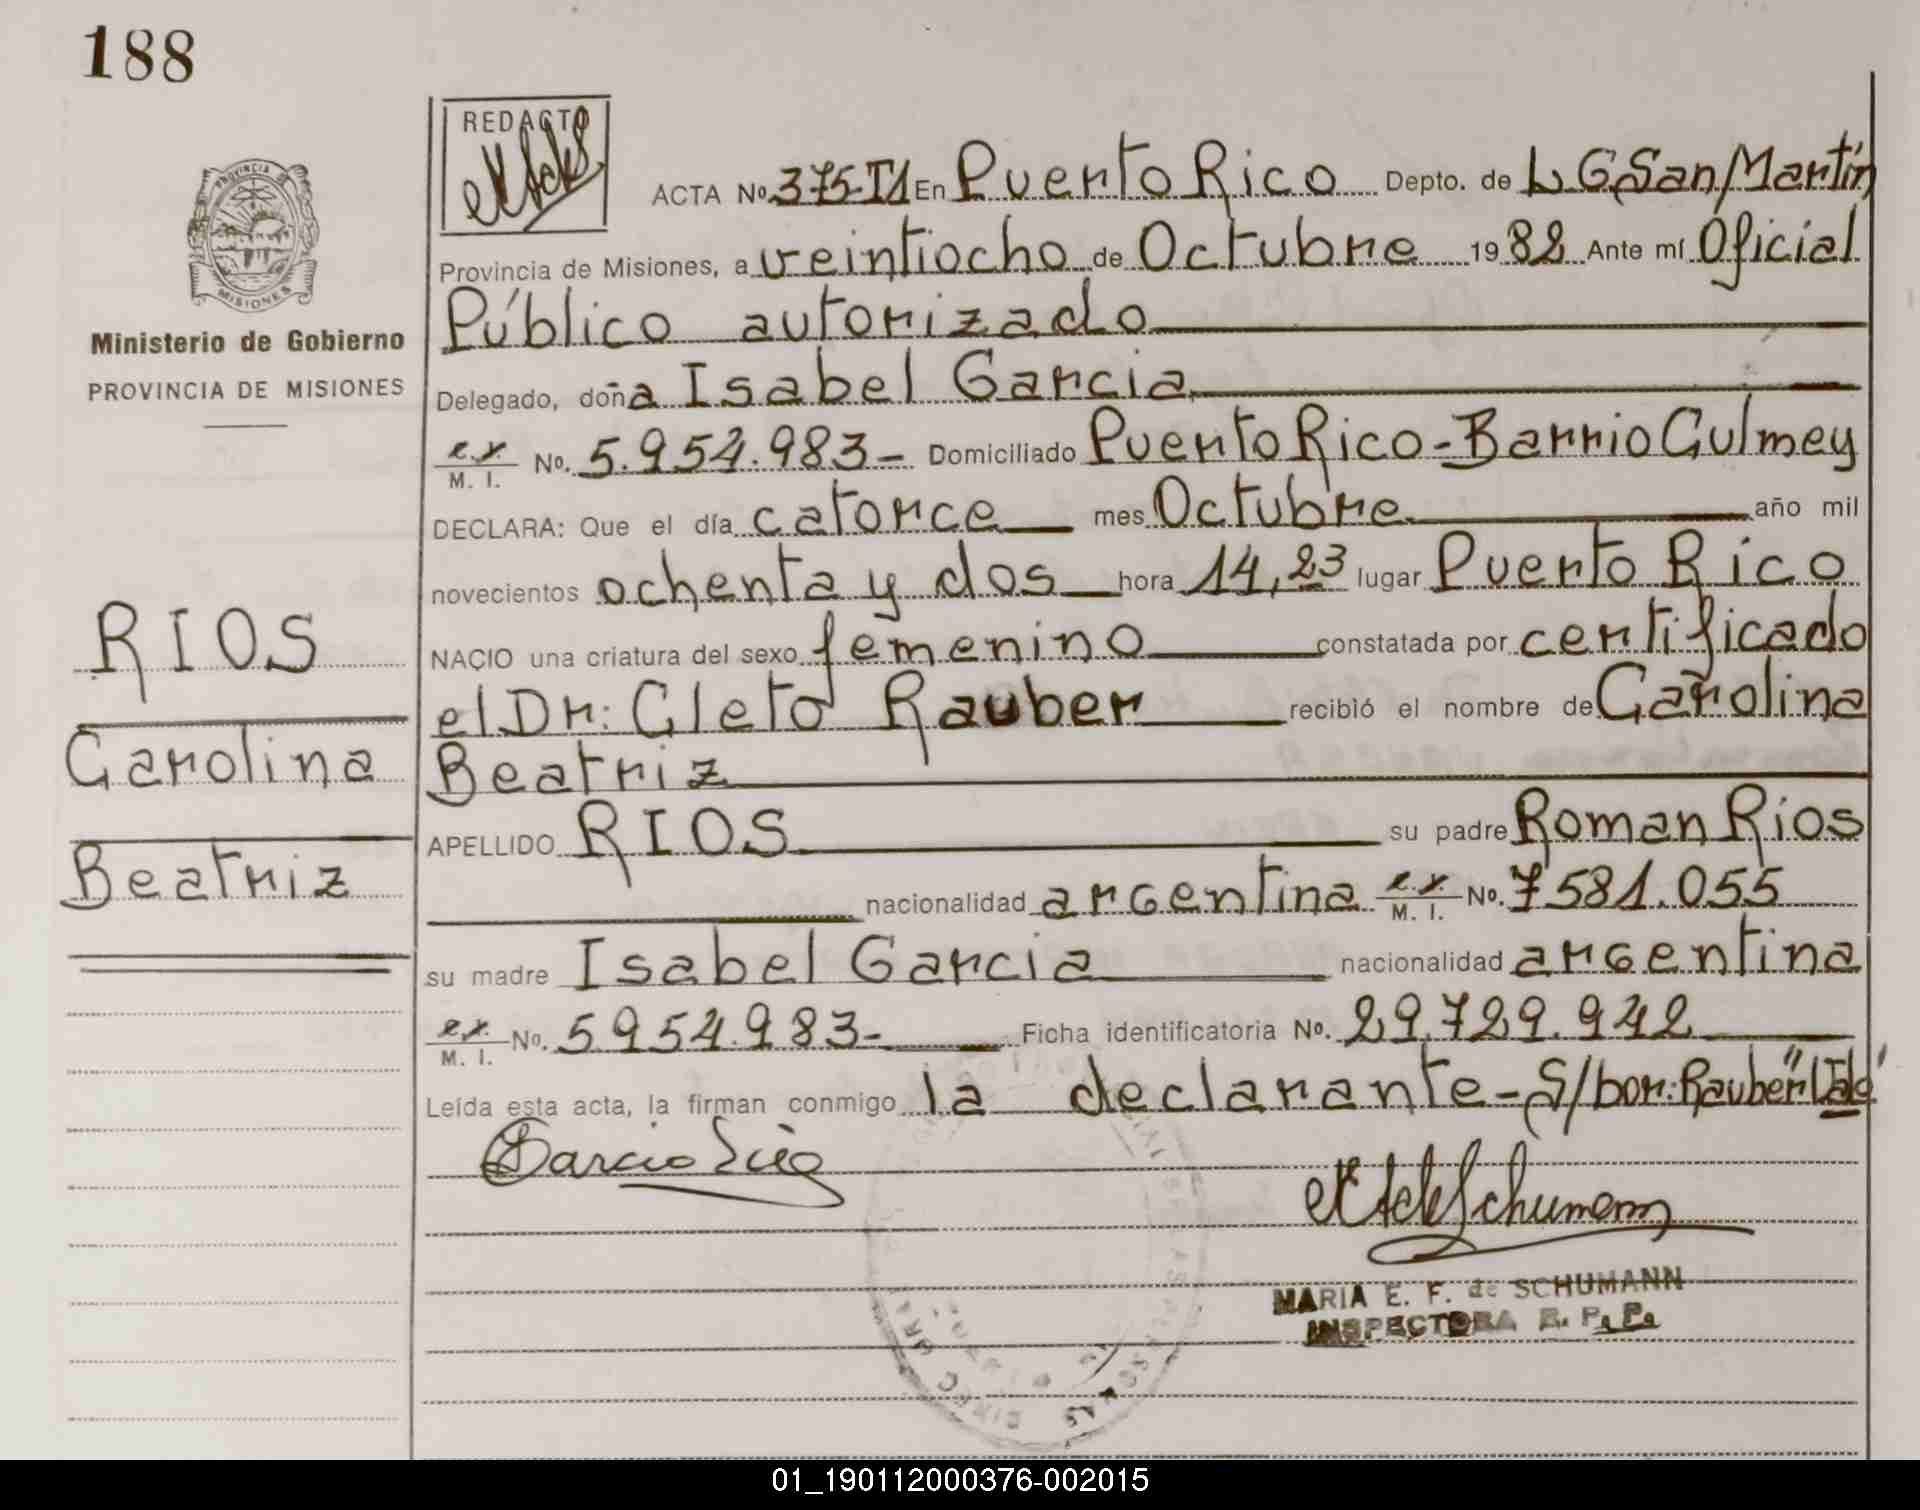 188
REDACTO
ACTA No. 375-T1 En Puerto Rico Depto. de L G San Martín
PROVINCIA
MISIONES
Provincia de Misiones, a veintiocho de Octubre 1982 Ante mí Oficial
Público autorizado
Ministerio de Gobierno
PROVINCIA DE MISIONES
Delegado, doña Isabel Garcia
M. I. No. 5.954.983- Domiciliado Puerto Rico - Barrio Gulmey
DECLARA: Que el día catorce mes Octubre año mil
novecientos ochenta y dos hora 14,23 lugar Puerto Rico
RIOS
NACIO una criatura del sexo femenino constatada por certificado
el Dr: Cleto Rauber recibió el nombre de Carolina
Carolina
Beatriz
APELLIDO RIOS su padre Roman Rios
Beatriz
nacionalidad argentina M. I. No. 7581.055
su madre Isabel Garcia nacionalidad argentina
M. I. No. 5954.983- Ficha identificatoria No. 29.729.942
Leída esta acta, la firman conmigo la declarante - S/bor: Rauber "Vale"
MARIA E. F. de SCHUMANN
INSPECTORA R. P. P.
01_190112000376-002015